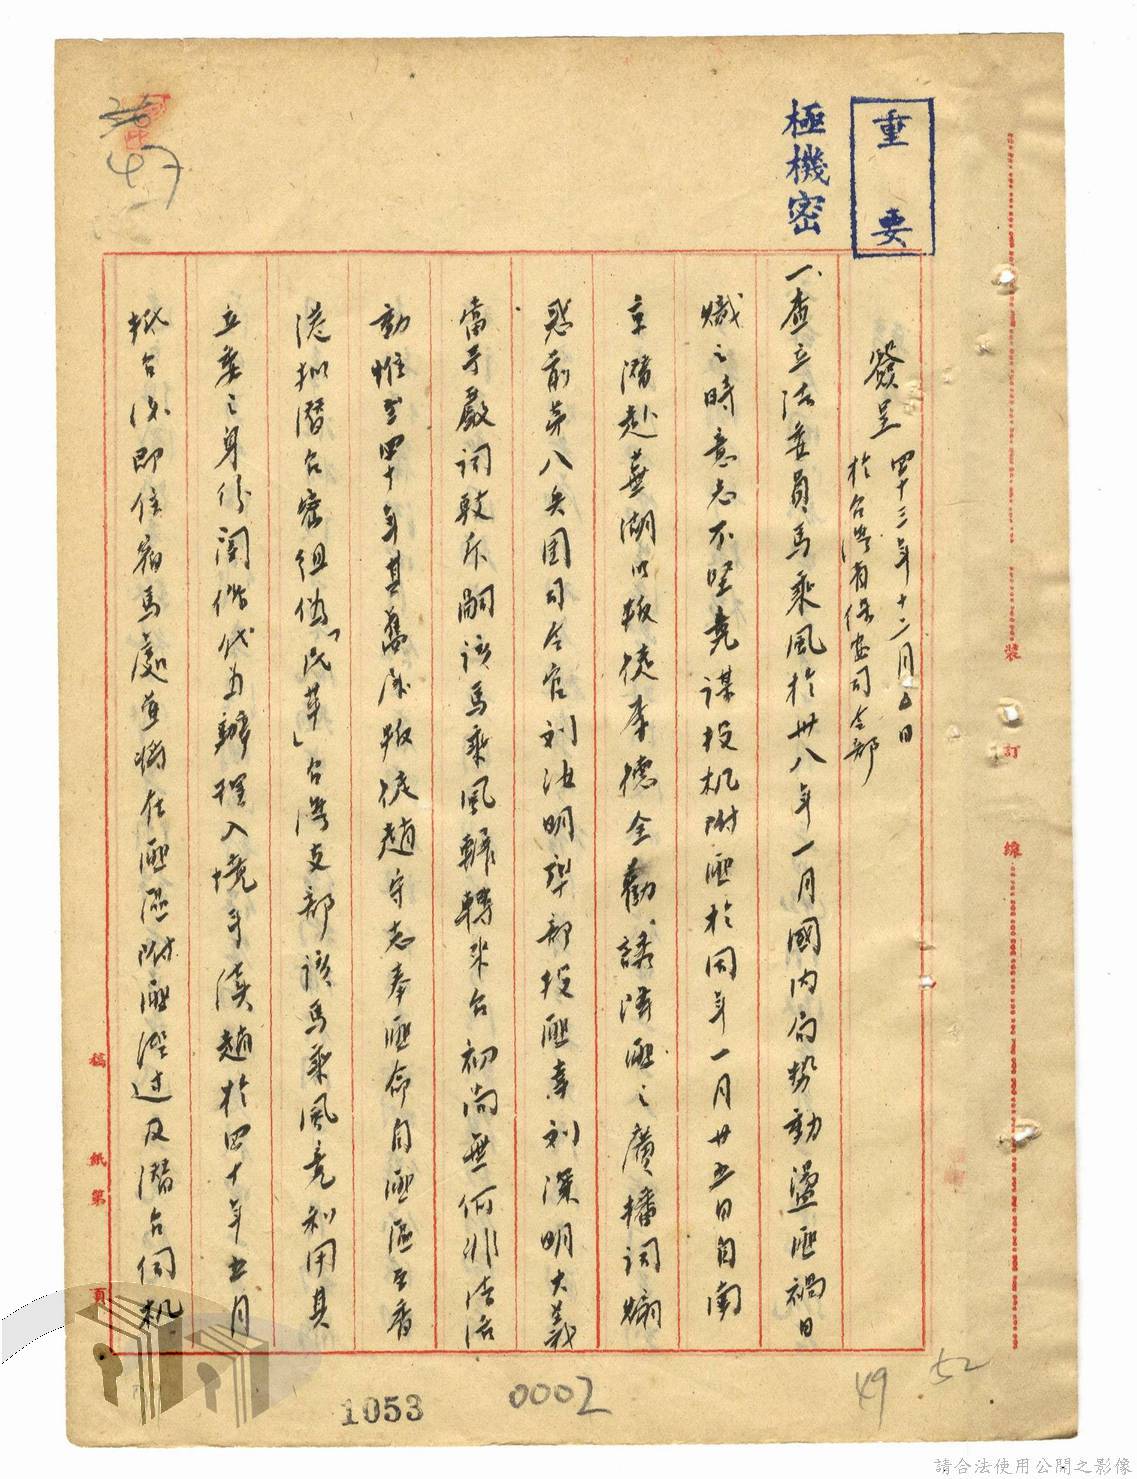 重要
極機密
簽呈 四十三年十二月 日
於台灣省保安司令部
一、查立法委員馬乘風於卅八年一月國內局势動盪匪禍日
熾之時意志不堅竟谋投机附匪於同年一月廿五日自南
京潛赴蕪湖以叛徒李德全勸誘降匪之廣播词煽
惑前第八兵团司令官刘汝明率部投匪幸刘深明大義
當予嚴词斥嗣該馬乘風輾轉来台初尚無何非法活
動惟至四十年其舊屬叛徒趙守志奉匪命自匪區至香
港拟潛台密组偽「民革」台灣支部該馬乘風竟利用其
立委之身份代为辦理入境手渎趙於四十年五月
抵台後即住宿馬處並將在匪區附匪經过及潛台伺机
裝
訂
線
稿紙第 頁
36
47
1053
0002
49
52
請合法使用公開之影像